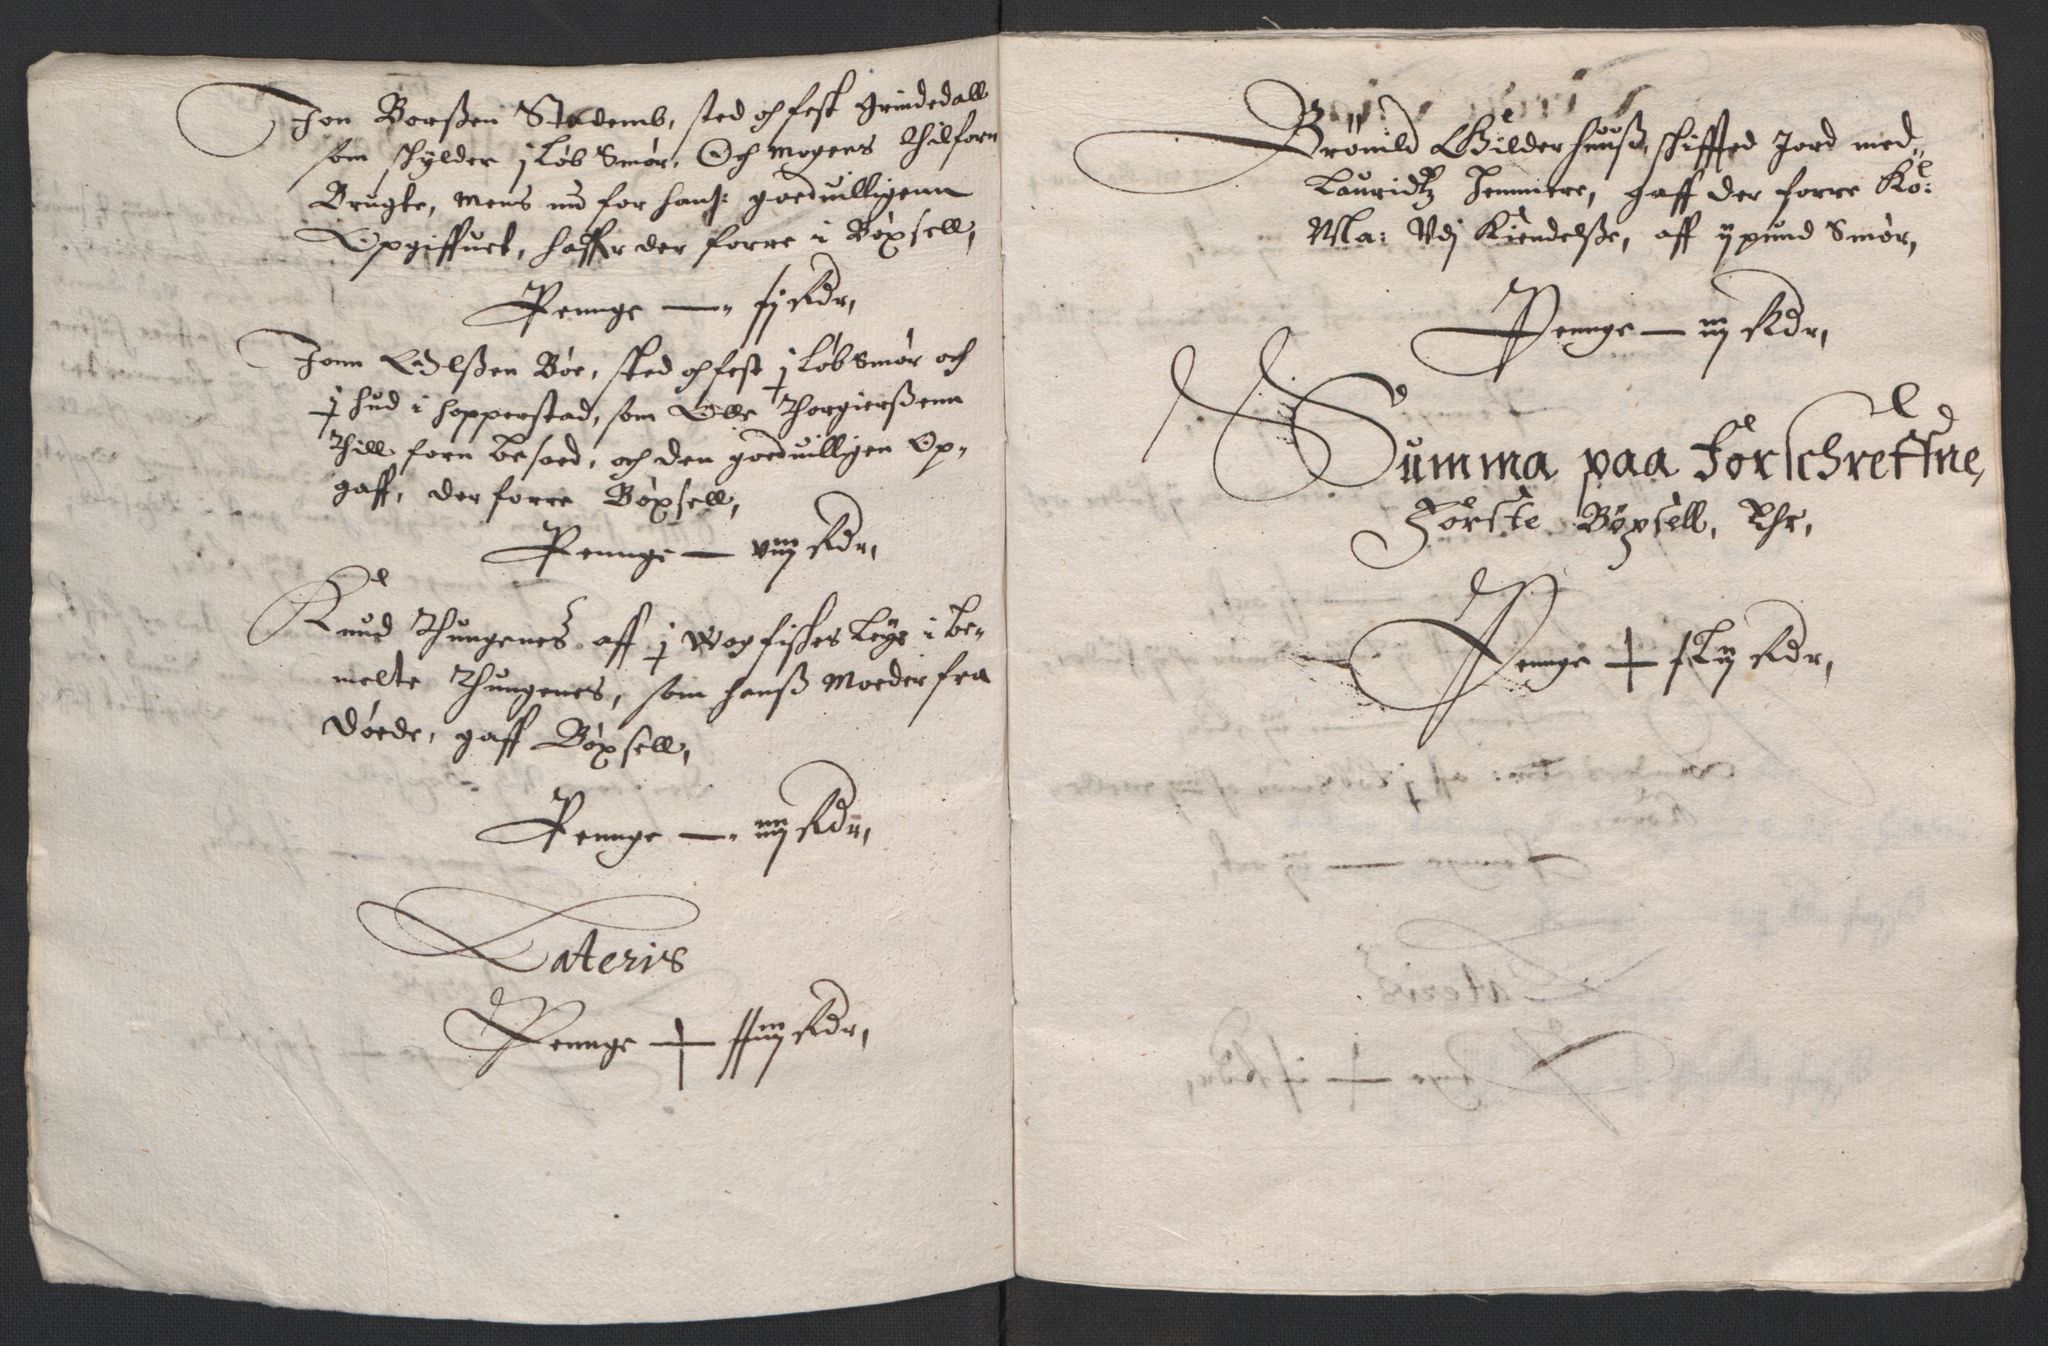 Jon Borßen Stedemb, sted och fest Grindedall
som schylder j Løb Smør, Och Mogens thilforn
Brugte, mens nu for hans goeduilligenn
Opgiffuet, haffr der forre i Bøxsell,
Pennge — Rdr,
Jonn Oelßen Bøe, sted och fest j Løb Smør och
j hud i Hopperstad, som Olle Thorgierßenn
Thill forn besaed, och den goeduilligen Op-
gaff, der forre Bøxsell,
Pennge — viij Rdr,
Knud Thungenes aff j Wog fiskes Leye i be-
melte Thungenes, som hanß Moeder fra
døede, gaff Bøxsell,
Pennge — Rdr,
Lateris
Pennge — Rdr,
Brønild Gilderhuuß, schiffted Jord med
Lauridtz Jemmere, gaff der forre Ko:
Ma: Vdj Kiendelße, aff ij pund Smør,
Pennge — iij Rdr,
Summa paa Forschreffne,
Første Bøxsell, Ehr,
Pennge — Rdr,